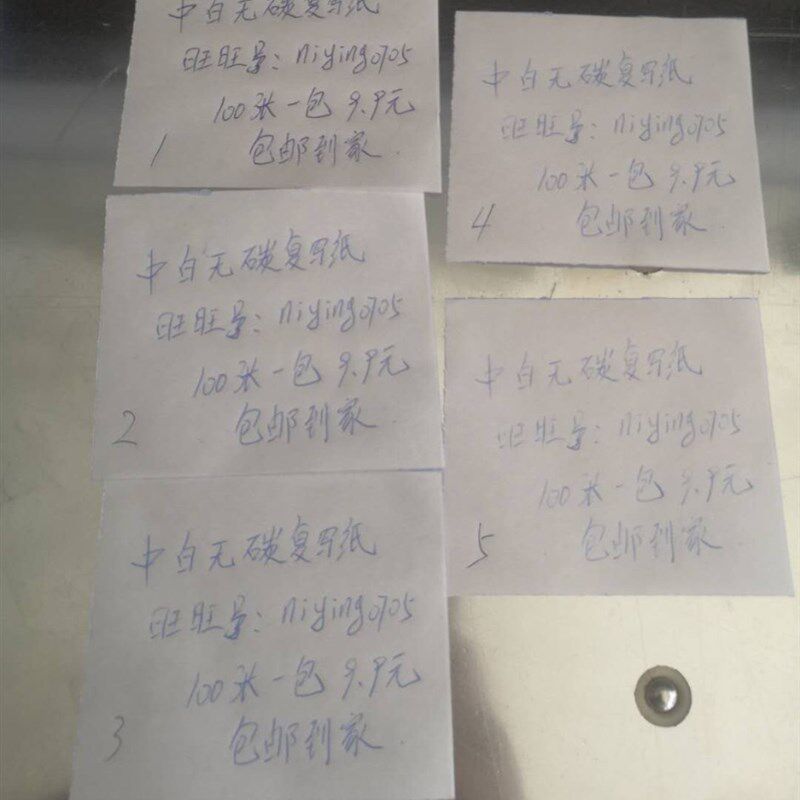 中白无碳复写纸
旺旺号：niying0705
100张一包 9.9元
包邮到家.
1
中白无碳复写纸
旺旺号：niying0705
100张一包 9.9元
包邮到家.
2
中白无碳复写纸
旺旺号：niying0705
100张一包 9.9元
包邮到家.
3
中白无碳复写纸
旺旺号：niying0705
100张一包 9.9元
包邮到家.
4
中白无碳复写纸
旺旺号：niying0705
100张一包 9.9元
包邮到家.
5